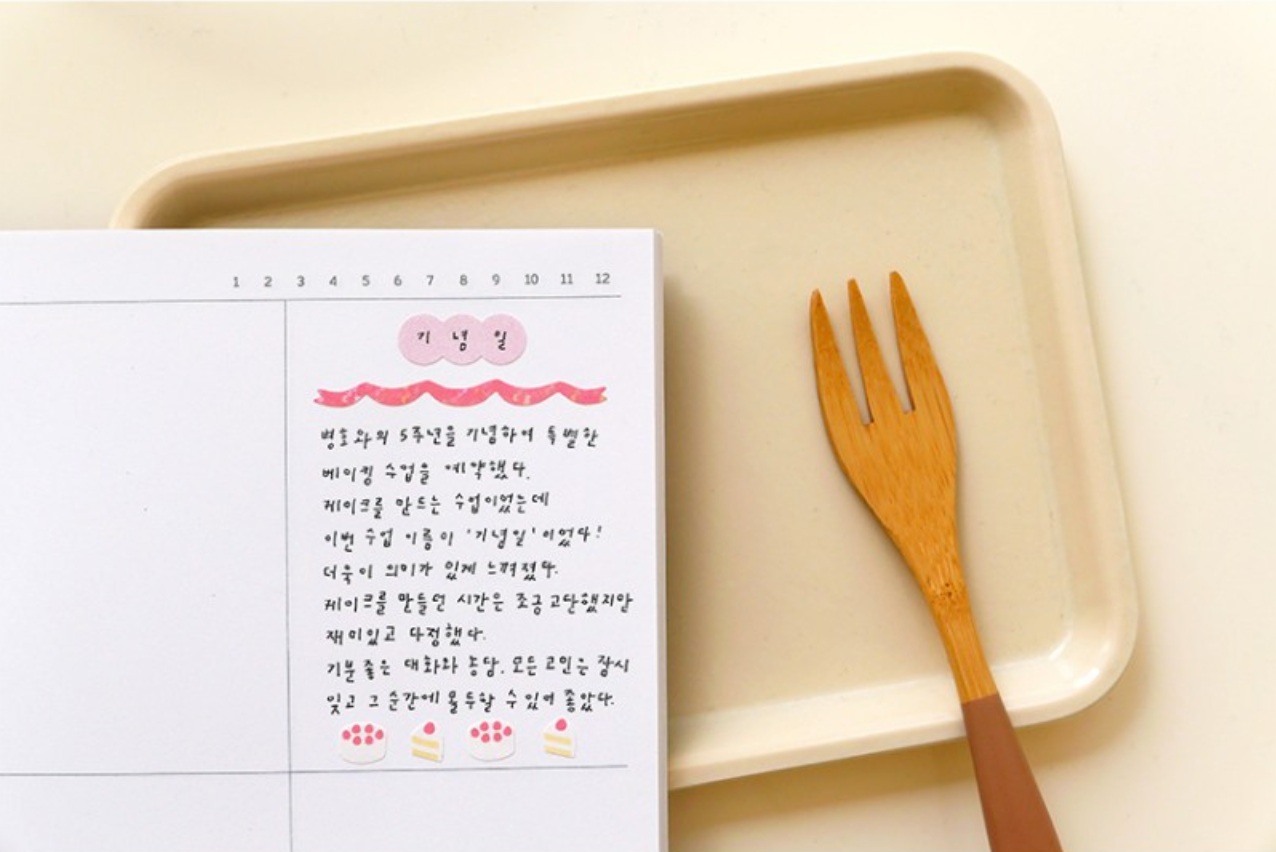 1 2 3 4 5 6 7 8 9 10 11 12
기념일
병호와의 5주년을 기념하여 특별한
베이킹 수업을 예약했다.
케이크를 만드는 수업이었는데
이번 수업 이름이 '기념일'이었다!
더욱이 의미가 있게 느껴졌다.
케이크를 만들던 시간은 조금 고단했지만
재미있고 다정했다.
기분 좋은 대화와 농담. 모든 고민은 잠시
잊고 그 순간에 몰두할 수 있어 좋았다.